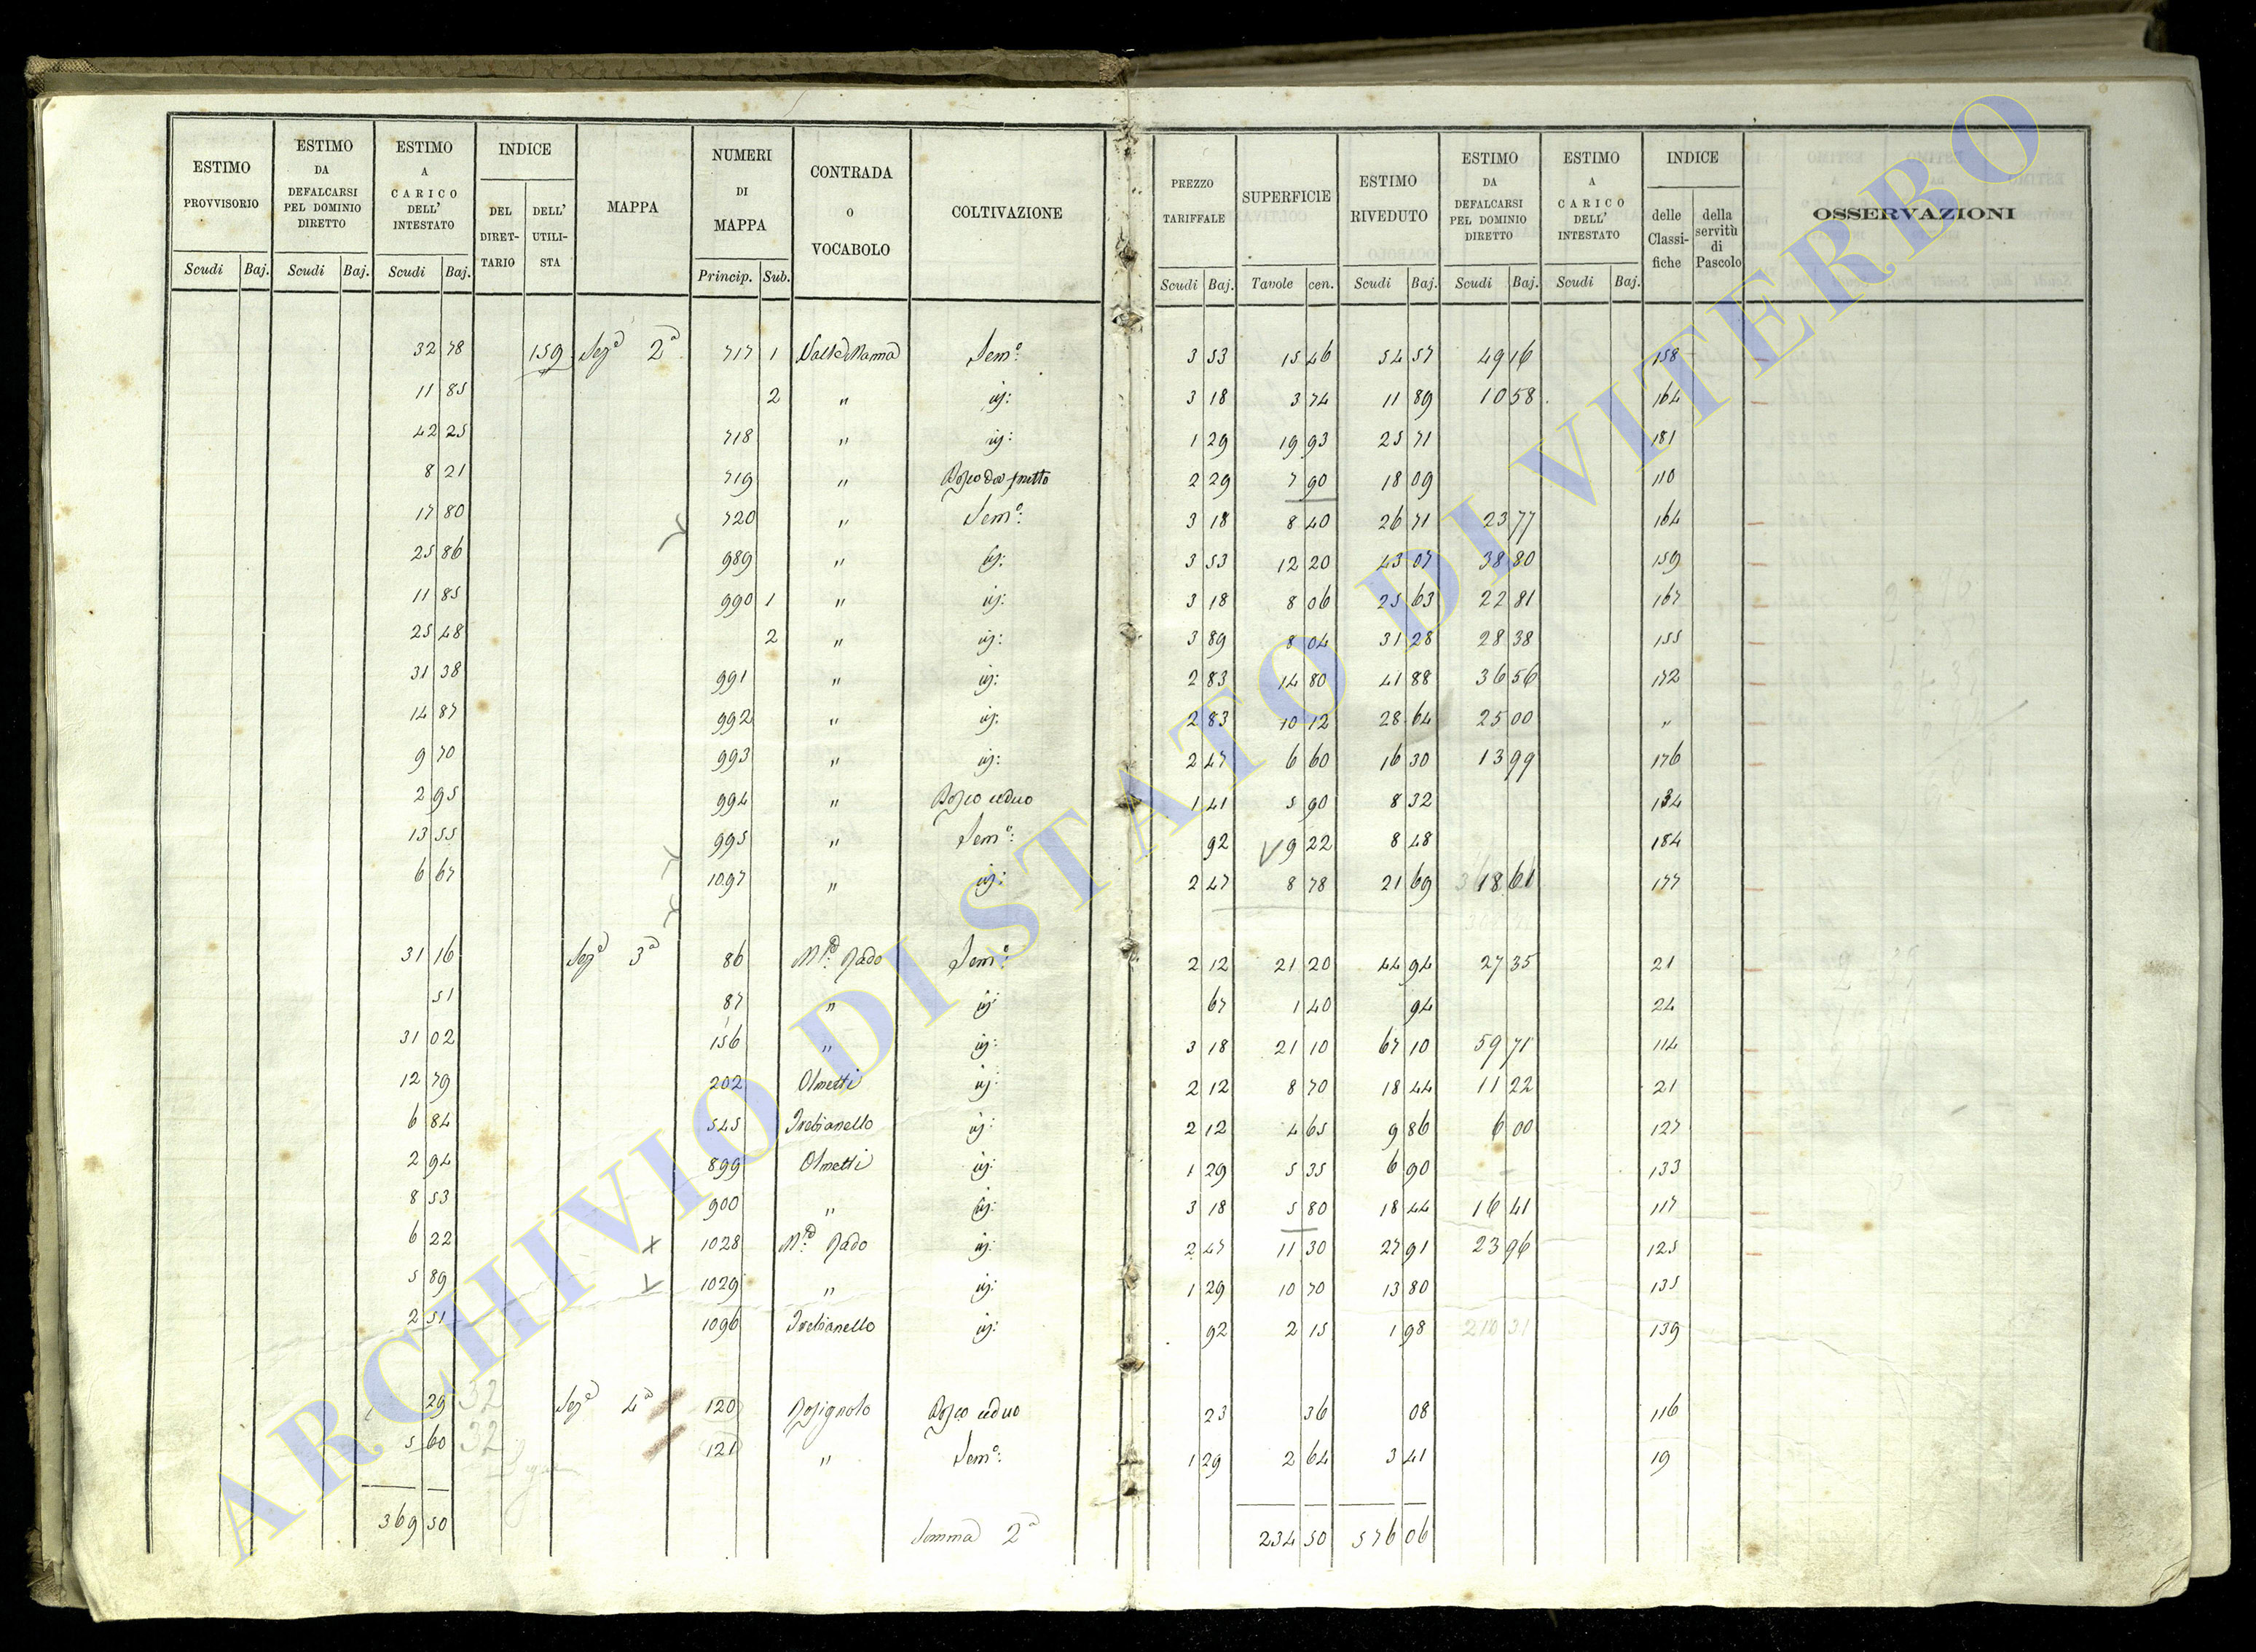 ESTIMO PROVVISORIO | ESTIMO DA DEFALCARSI PEL DOMINIO DIRETTO | ESTIMO A CARICO DELL' INTESTATO | INDICE DEL DIRETTARIO | DELL' UTILISTA | MAPPA | NUMERI DI MAPPA | CONTRADA O VOCABOLO | COLTIVAZIONE | PREZZO TARIFFALE | SUPERFICIE | ESTIMO RIVEDUTO | ESTIMO DA DEFALCARSI PEL DOMINIO DIRETTO | ESTIMO A CARICO DELL' INTESTATO | INDICE delle Classifiche | della servitù di Pascolo | OSSERVAZIONI
Scudi Baj. Scudi Baj. Scudi Baj. Princip. Sub. Scudi Baj. Tavole cen. Scudi Baj. Scudi Baj. Scudi Baj.
32 78 159 Sez.a 2a 717 1 Sem.o: 3 53 15 46 54 57 49 16 158
11 85 2 " id: 3 18 3 74 11 89 10 58 164
42 25 718 " id: 1 29 19 93 25 71 181
8 21 719 " Bosco da frutto 2 29 7 90 18 09 110
17 80 720 " Sem.o: 3 18 8 40 26 71 23 77 164
25 86 989 " id: 3 53 12 20 43 07 38 80 159
11 85 990 1 " id: 3 18 8 06 25 63 22 81 167
25 48 2 " id: 3 89 8 04 31 28 28 38 155
31 38 991 " id: 2 83 14 80 41 88 36 56 172
14 87 992 " id: 2 83 10 12 28 64 25 00 "
9 70 993 " id: 2 47 6 60 16 30 13 99 176
2 95 994 " Bosco ceduo 1 41 5 90 8 32 134
13 55 995 " Sem.o: 92 9 22 8 48 184
6 67 1097 " id: 2 47 8 78 21 69 18 61 177
31 16 Sez.a 3a 86 Sem.o: 2 12 21 20 44 94 27 35 21
51 87 " id: 67 1 40 94 24
31 02 156 " id: 3 18 21 10 67 10 59 71 114
12 79 202 Olmetti id: 2 12 8 70 18 44 11 22 21
6 84 545 Trebianello id: 2 12 4 65 9 86 6 00 127
2 94 899 Olmetti id: 1 29 5 35 6 90 133
8 53 900 " id: 3 18 5 80 18 44 16 41 117
6 22 1028 id: 2 47 11 30 27 91 23 96 125
5 89 1029 " id: 1 29 10 70 13 80 135
2 51 1096 Trebianello id: 92 2 15 1 98 210 31 139
29 32 Sez.a 4a 120 Rosignolo Bosco ceduo 23 36 08 116
5 60 32 121 " Sem.o: 1 29 2 64 3 41 19
369 50 Somma 2a 234 50 576 06
ARCHIVIO DI STATO DI VITERBO